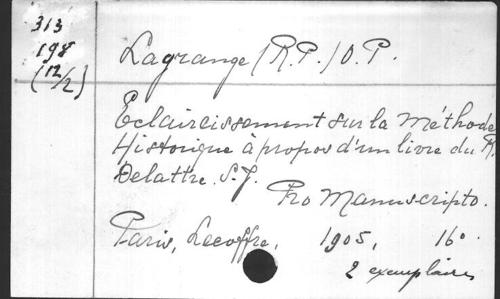 313
198
(12/2)
Lagrange (R.P.) O.P.
Eclaircissement sur la Méthode
Historique à propos d'un livre du P.
Delattre. S.J.
Pro Manuscripto.
Paris, Lecoffre, 1905, 16°
2 exemplaires